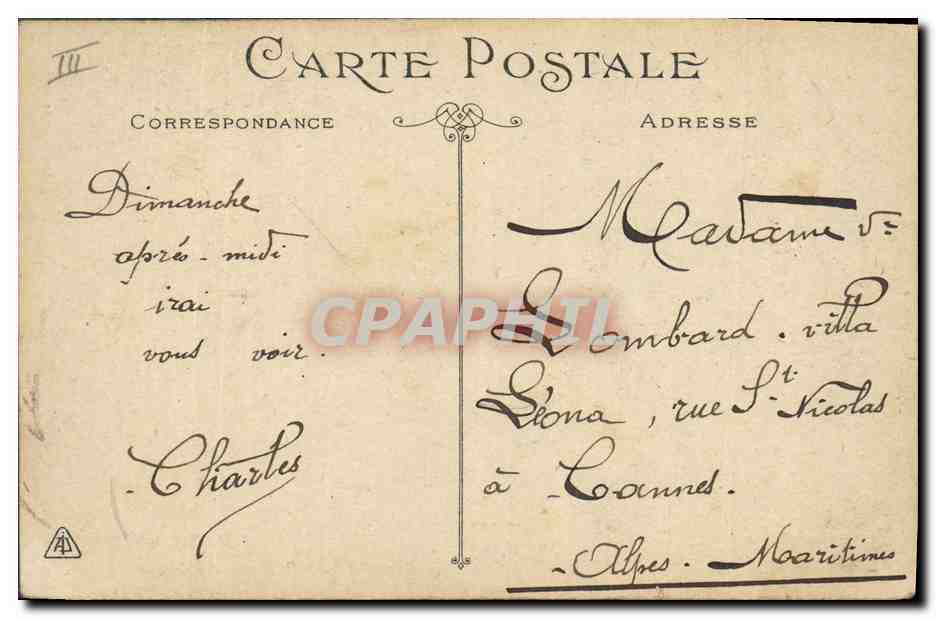 III
CARTE POSTALE
CORRESPONDANCE
ADRESSE
Dimanche
après-midi
irai
vous voir.
Charles
Madame Ve
Lombard. villa
Léona, rue St. Nicolas
à Cannes.
Alpes. Maritimes
CPAPHIL